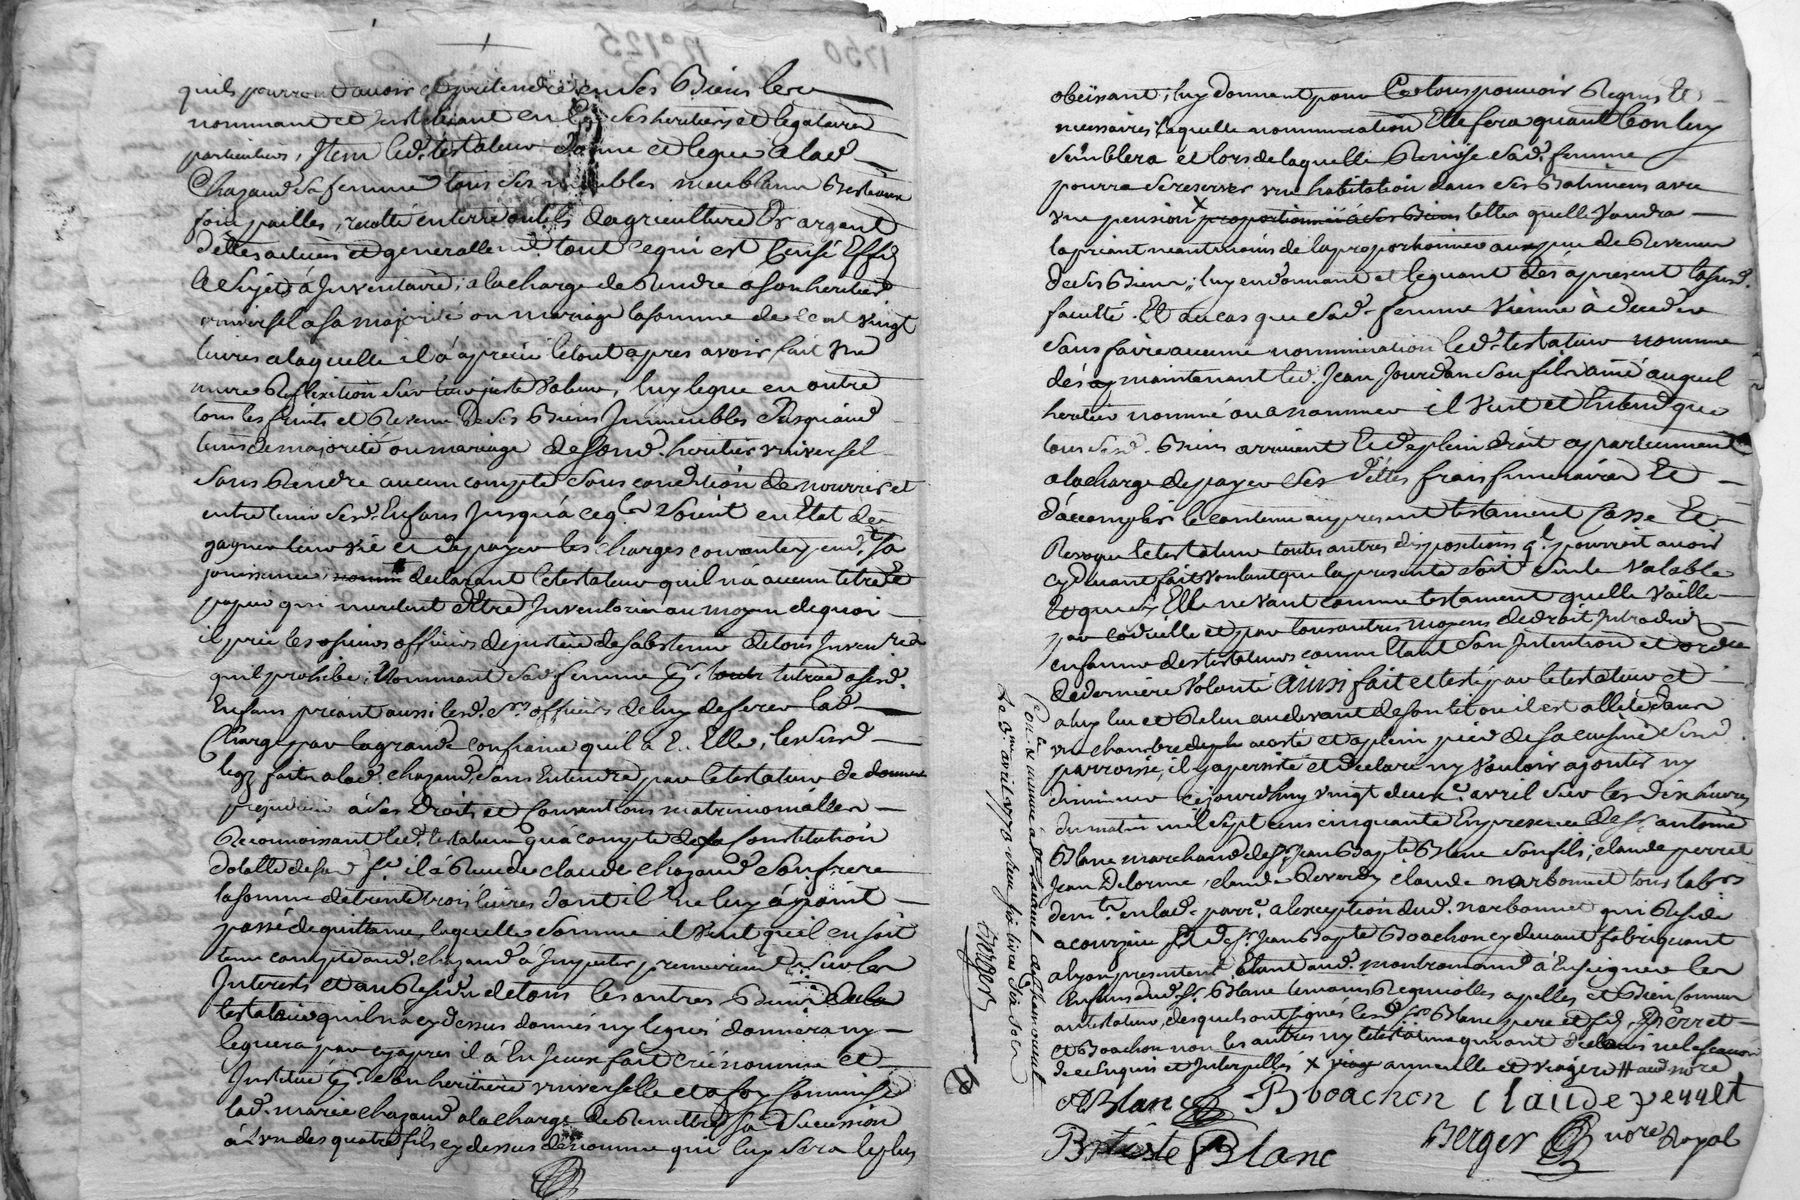 quils pourront avoir et pretendre en ses Biens les
nommant et instituant en ses heritiers et legataires
particuliers, Item led. testateur donne et legue a lad.
Chazaud sa femme tous ses meubles meublans Bestiaux
foin pailles, recolte en terre outils dagriculture Or argent
dettes actives et generallemt. tout ce qui est Censé Effet
& sujet à Inventaire; a la charge de Rendre a son heritier
universel a sa majorité ou mariage la somme de cent vingt
livres a laquelle il a aprecié le tout apres avoir fait Une
mure Reflexion sur leur juste Valeur, luy legue en outre
tous les fruits et Revenus De ses Biens Immeubles Jusqu'au
tems de majorité ou mariage de sond. heritier universel
sans Rendre aucun compte sous condition de nourrir et
entretenir sesd. Enfans Jusqu'à ce qls soient en Etat de
gagner leur vie et de payer les charges courantes pendt. sa
jouissance, declarant le testateur quil n'a aucun titre et
papier qui meritent d'Etre Inventoriés au moyen de quoi
il prie les officiers de justice de sabstenir de tous Inventres
quil prohibe; Nommant sad. femme pr. tutrice a sesd.
Enfans priant aussi lesd. Srs. officiers de luy deferer lad.
Charge par la grande confiance qu'il a E. Elle, les susd.
legz faits a lad. chazaud, sans Entendre par le testateur de donner
prejudice à ses droits et Conventions matrimonialles
Reconnoissant led. testateur qu'a compte de la Constitution
dotalle de sad. fe. il a Reçu de claude chazaud son frere
la somme de trente trois livres dont il ne luy a point
passé de quittance, laquelle somme il veut qu'il en soit
tenu compte aud. chazaud a Imputer premierement sur les
Interests et au Residu de tous les autres Biens dud.
testateur quil n'a cy dessus donnés ny legués donnera ny
leguera par cy apres il a En Iceux fait créé nommé et
Institué pr. son heritiere universelle et a foy commise
lad. marie chazaud a la charge de Remettre sa succession
à l'un des quatre fils cy dessus denommés qui luy sera le plus
obeissant, luy donnant pour Ce tous pouvoir Requis Et
necessaires, laquelle nommination Elle fera quant bon luy
semblera et lors de laquelle Remise sad. femme
pourra se reserver une habitation dans ses Batimens avec
une pension x proportionnée à ses Biens telle quelle Voudra
la priant neantmoins de la proportionner au peu de Revenu
de ses Biens; luy en donnant et leguant dès a present lasusd.
faculté. Et au cas que sad. femme Vienne à deceder
sans faire aucune nommination led. testateur nomme
dés maintenant led. Jean Jourdan son fils ainé auquel
heritier nommé ou a nommer il veut et Entend que
tous sesd. Biens arrivent de plein droit apartiennent
a la charge de payer ses dettes frais funeraires Et
d'accomplir le contenu au present testament Casse Et
Revoque le testateur toutes autres dispositions ql. pourroit avoir
cy devant fait voulant que la presente soit seule Valable
Et que sy Elle ne vaut comme testament quelle Vaille
par codicille et par tous autres moyens de droit Introduits
en faveur des testateurs comme Etant son Intention et ordce
de derniere Volonté Ainsi fait et testé par le testateur et
a luy lu et Relu au devant de son lit ou il est allité dans
une chambre a costé et a plein pied de sa cuisine susd.
parroisse, il y a persisté et declaré ny vouloir ajouter ny
diminuer cejourdhuy vingt deuxe. avril sur les dix heures
du matin mil sept cens cinquante En presence de Sr. antoine
Blanc marchand de Sr. Jean Bapte Blanc son fils, claude perret
Jean Delorme, claude Reverdy claude narbonnet tous labrs
demts. en lad. parre. a lexception dud. narbonnet qui Reside
a courzieu et de Sr. Jean Bapte Boachon cy devant fabriquant
a lyon presentemt. Etant aud. montromand à Enseigner les
Enfans dud. Sr. Blanc temoins Requis et apellés et Bien connus
au testateur, desquels ont signés lesd. Srs Blanc pere et fils, Perret
et Boachon non les autres ny le testateur qui ont declarés ne le scavoir
de ce Enquis et Interpellés x annuelle et viagere # aud. notre
ABlanc B boachon Claude perret
Batiste Blanc Berger nore Royal
Con.le de meme a
Le 3me avril 1778 dix sols
Berger